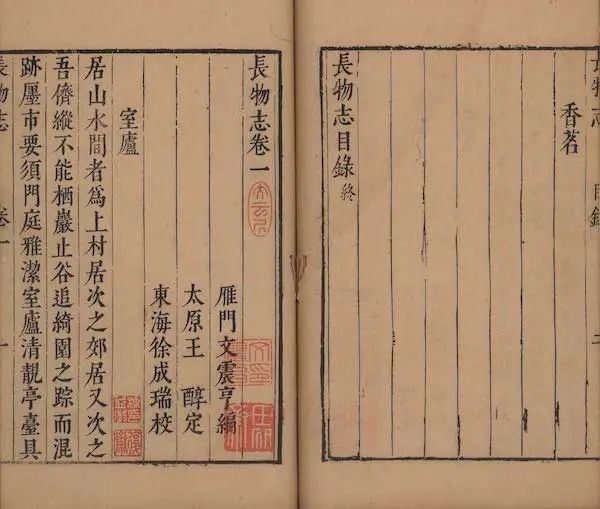 長物志 目錄
香茗
二
長物志目錄終
長物志卷一
雁門文震亨編
太原王醇定
東海徐成瑞校
室廬
居山水間者為上村居次之郊居又次之
吾儕縱不能栖巖止谷追綺園之踪而混
跡廛市要須門庭雅潔室廬清靚亭臺具
長物志 卷一 一